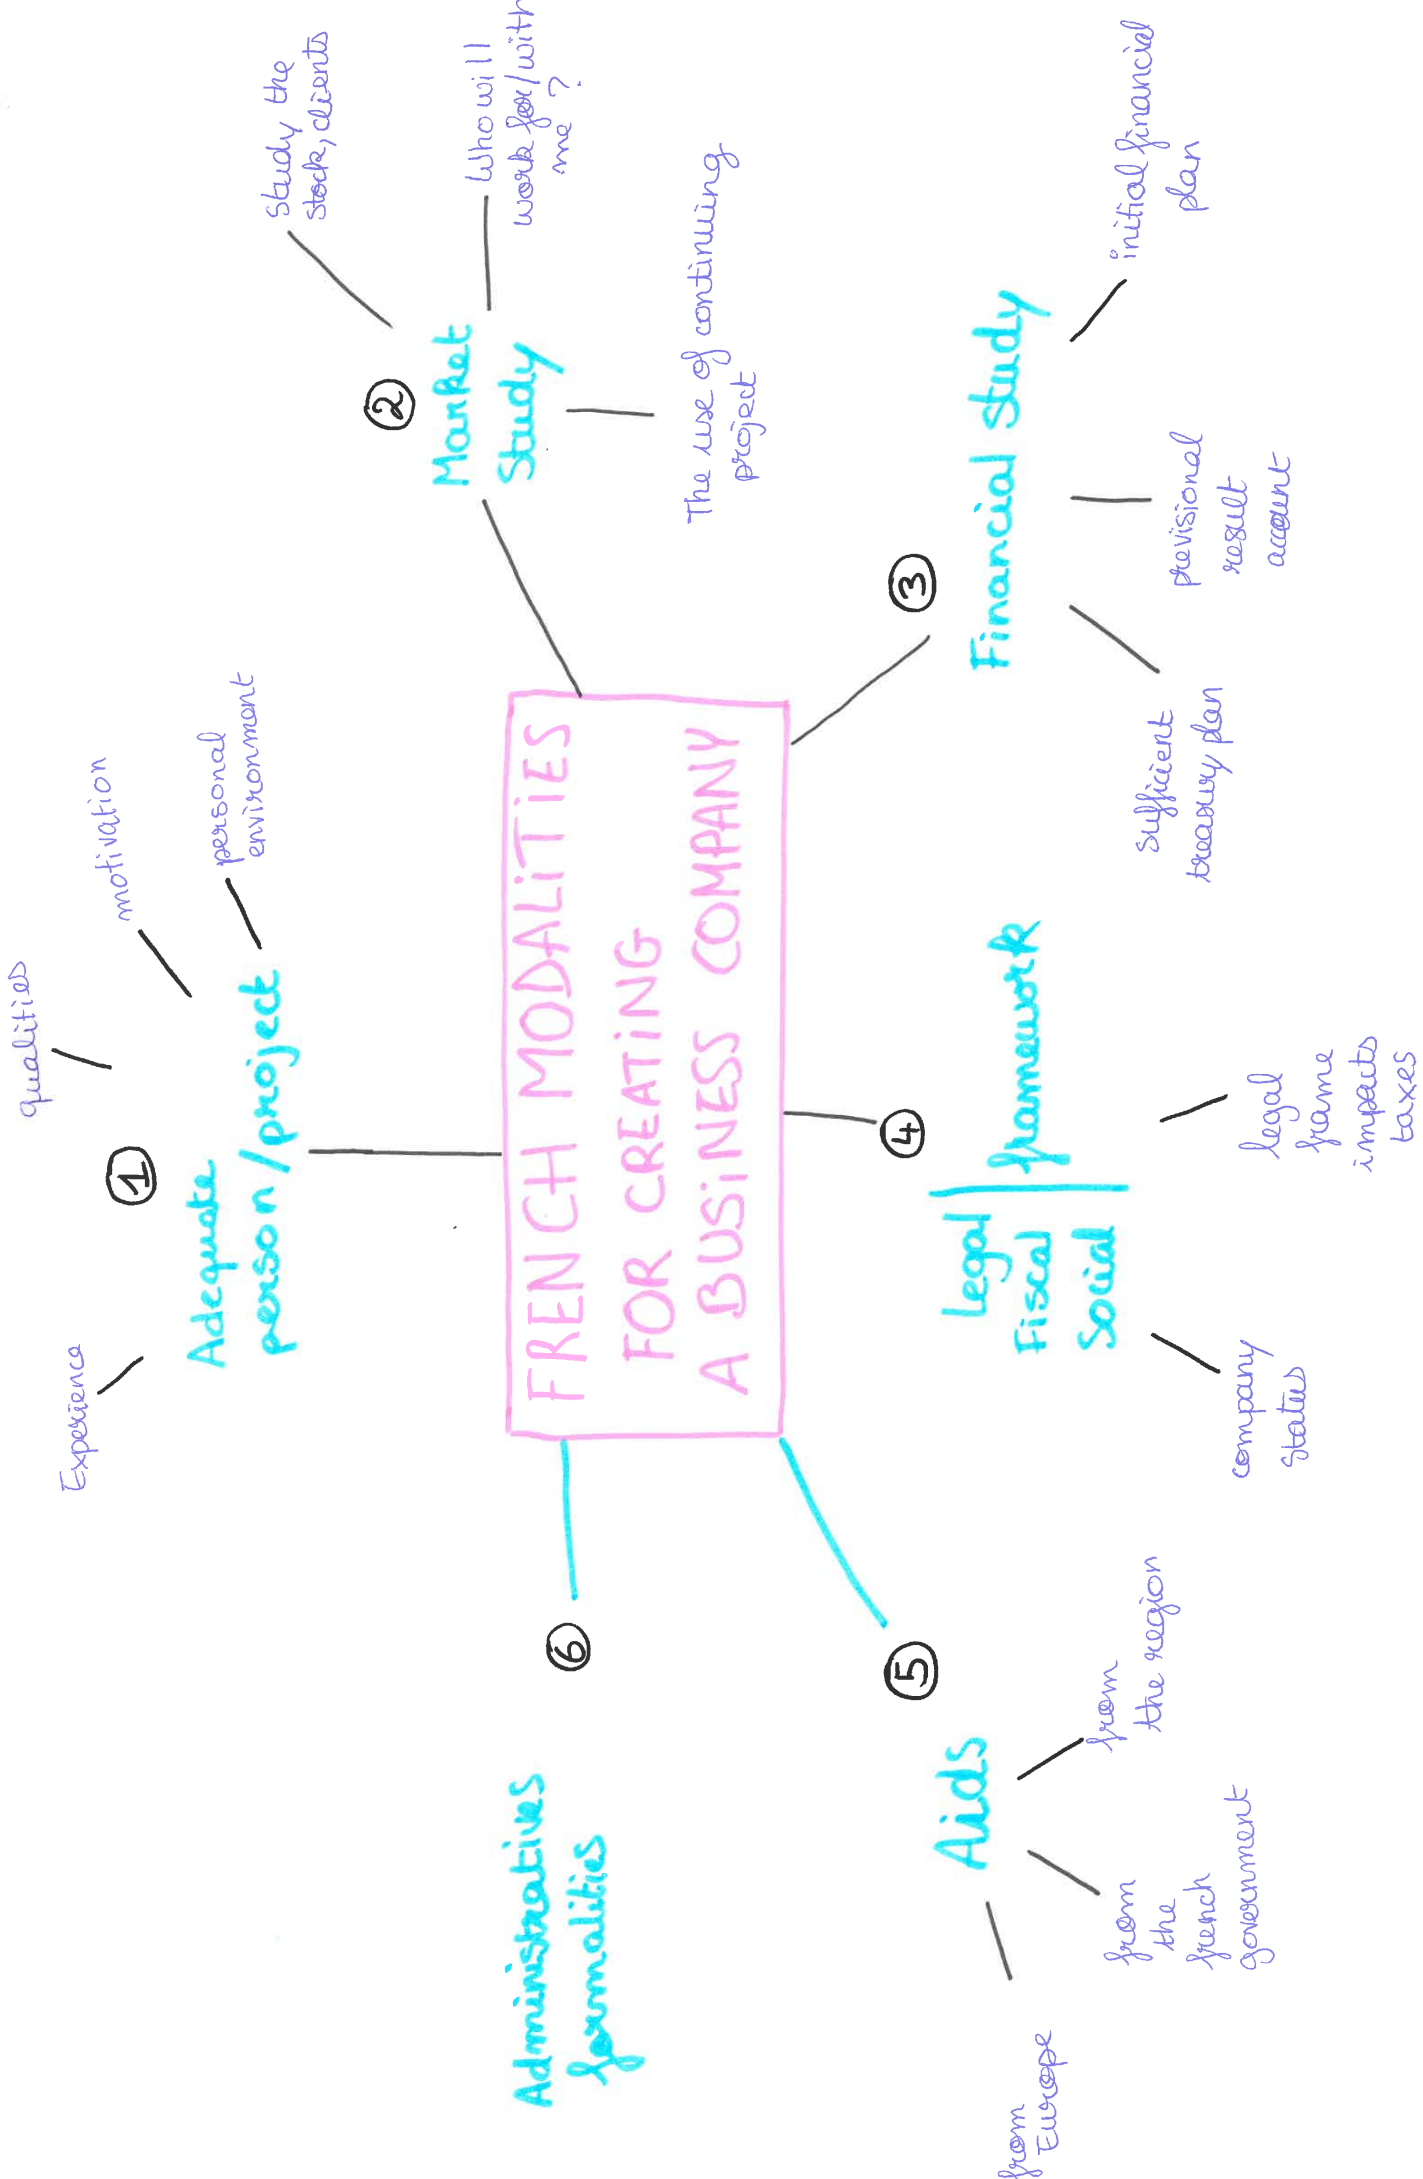 FRENCH MODALITIES
FOR CREATING
A BUSINESS COMPANY
1
Adequate
person/project
Experience
qualities
motivation
personal
environment
2
Market
Study
Study the
stock, clients
Who will
work for/with
me ?
The use of continuing
project
3
Financial Study
initial financial
plan
previsional
result
account
sufficient
treasury plan
4
Legal
Fiscal
Social
framework
legal
frame
impacts
taxes
company
status
5
Aids
from
the region
from
the
french
government
from
Europe
6
Administratives
formalities